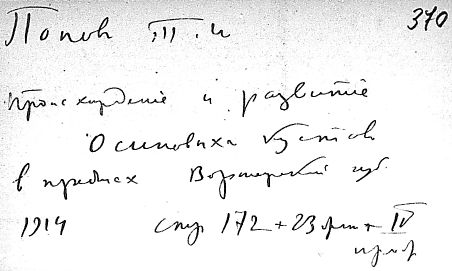 Попов Т. И. 370
Происхождение и развитие
Осиновых кустов
в пределах Воронежской губ.
1914 стр 172 + 23 рт + IV
прилор